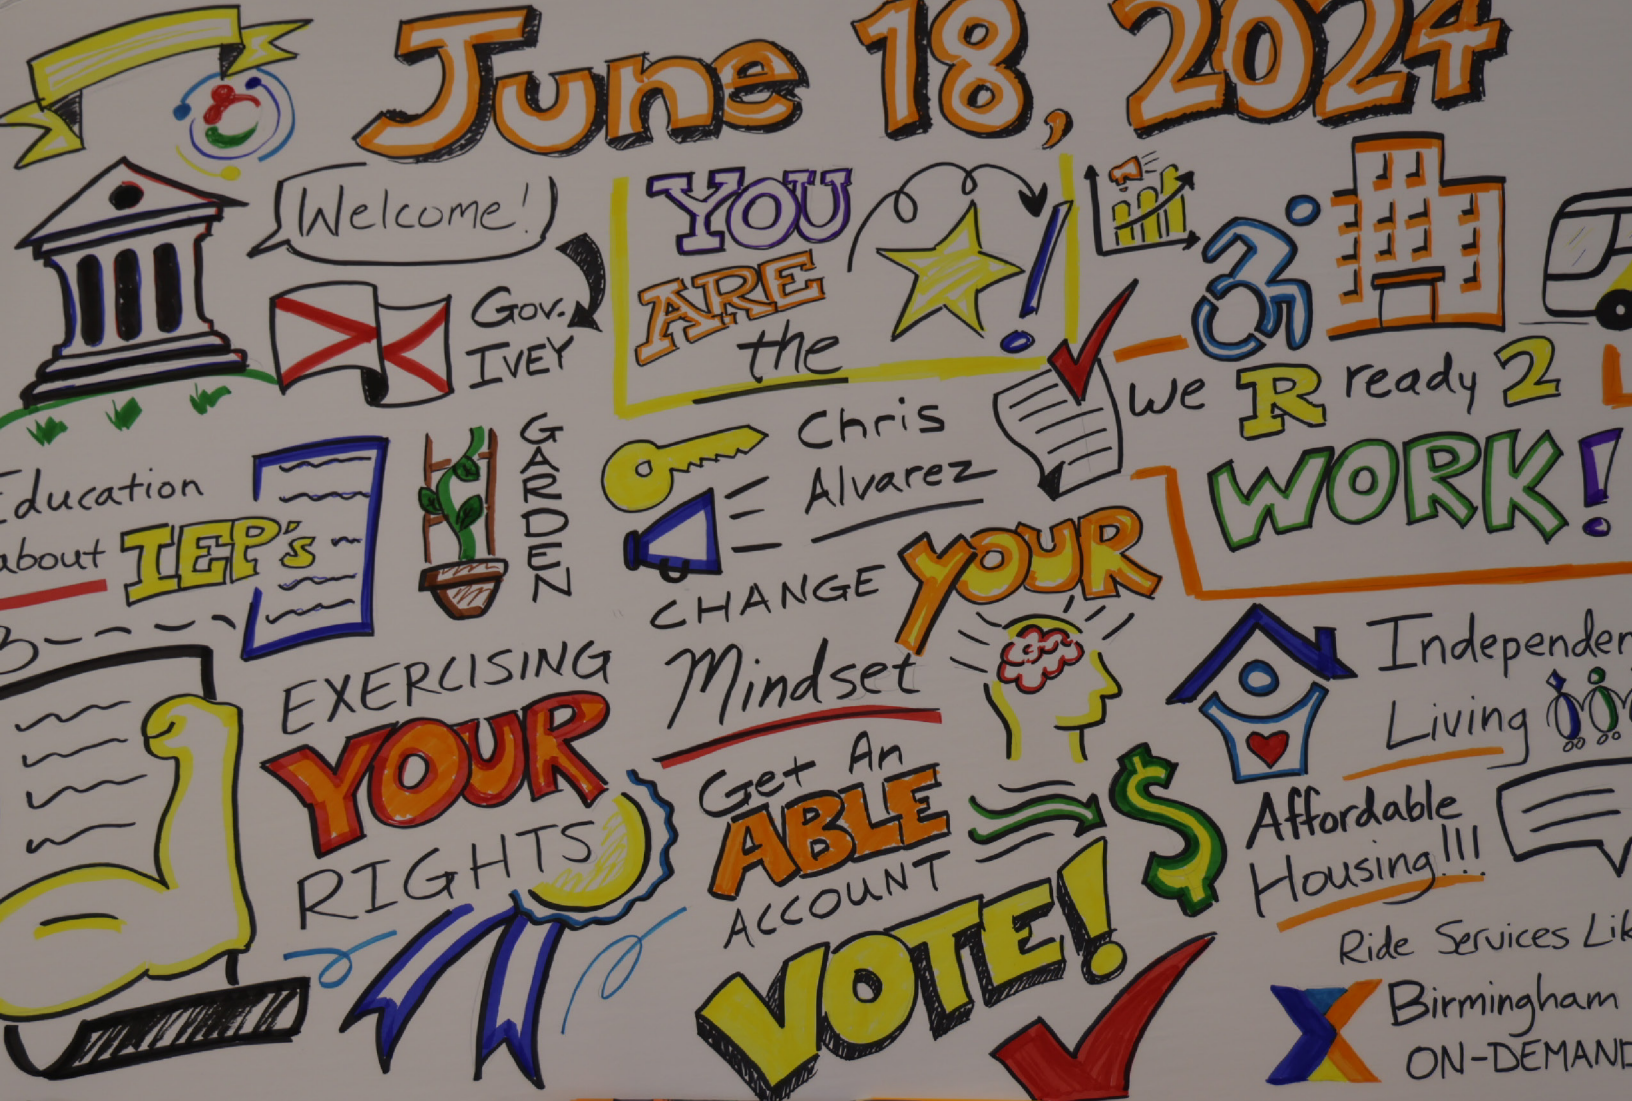 June 18, 2024
Welcome!
Gov.
IVEY
YOU
ARE
the
We R ready 2
WORK!
Education
about IEP's
GARDEN
Chris
Alvarez
CHANGE YOUR
Mindset
EXERCISING
YOUR
RIGHTS
Get An
ABLE
ACCOUNT
$
VOTE!
Independen
Living
Affordable
Housing!!!
Ride Services Lik
Birmingham
ON-DEMAND